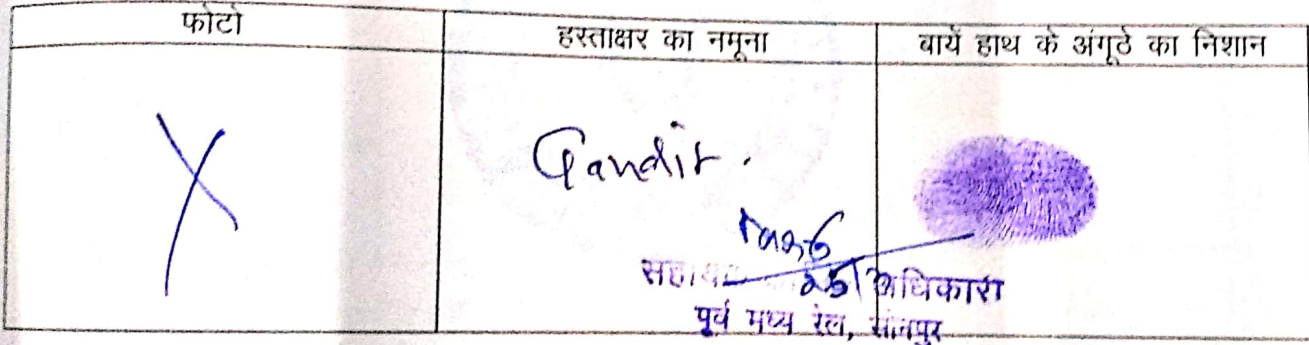 फोटो
हस्ताक्षर का नमूना
बायें हाथ के अंगूठे का निशान
X
Pandit.
अधिकारी
पूर्व मध्य रेल, सोनपुर